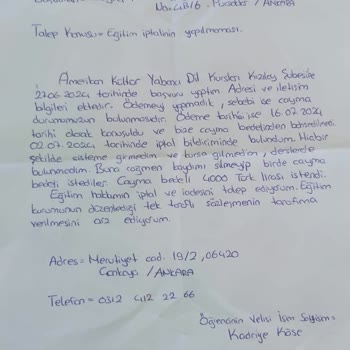 No: 4B/6 - / ANKARA
Talep Konusu = Eğitim iptalinin yapılmaması.
Amerikan Kültür Yabancı Dil Kursları Kızılay Şubesine
27.06.2024 tarihinde başvuru yaptım Adresi ve iletişim
bilgileri ektedir. Ödemeyi yapmadık, sebebi ise cayma
durumumuzun bulunmasıdır. Ödeme tarihi ise 16.07.2024
tarihi olarak konuşuldu ve bize cayma bedelinden bahsedilmedi.
02.07.2024 tarihinde iptal bildiriminde bulundum. Hiçbir
şekilde sisteme girmedim ve kursa gitmedim, derslerde
bulunmadım. Buna rağmen kaydımı silmeyip birde cayma
bedeli istediler. Cayma bedeli 4000 Türk lirası istendi.
Eğitim hakkımın iptal ve iadesini talep ediyorum. Eğitim
kurumunun düzenlediği tek taraflı sözleşmenin tarafıma
verilmesini arz ediyorum.
Adres = Meşrutiyet cad. 19/2, 06420
Çankaya / ANKARA
Telefon = 0312 412 22 66
Öğrencinin Velisi İsim Soyisim =
Kadriye Köse